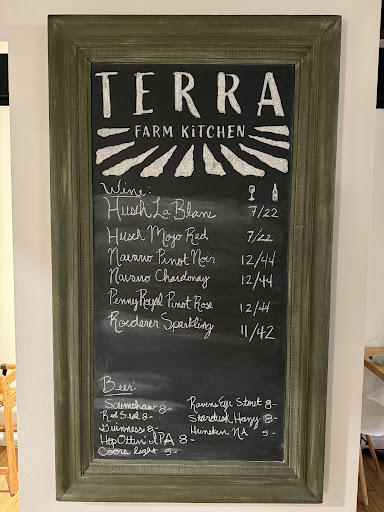 TERRA
FARM KITCHEN
Wine:
Husch La Blanc 7/22
Husch Mojo Red 7/22
Navarro Pinot Noir 12/44
Navarro Chardonnay 12/44
PennyRoyal Pinot Rose 12/44
Roederer Sparkling 11/42
Beer:
Scrimshaw 8-
Red Seal 8-
Guinness 8-
Hop Ottin' IPA 8-
Coors light 5-
Ravens Eye Stout 8-
Stardust Hazy 8-
Heineken NA 5-